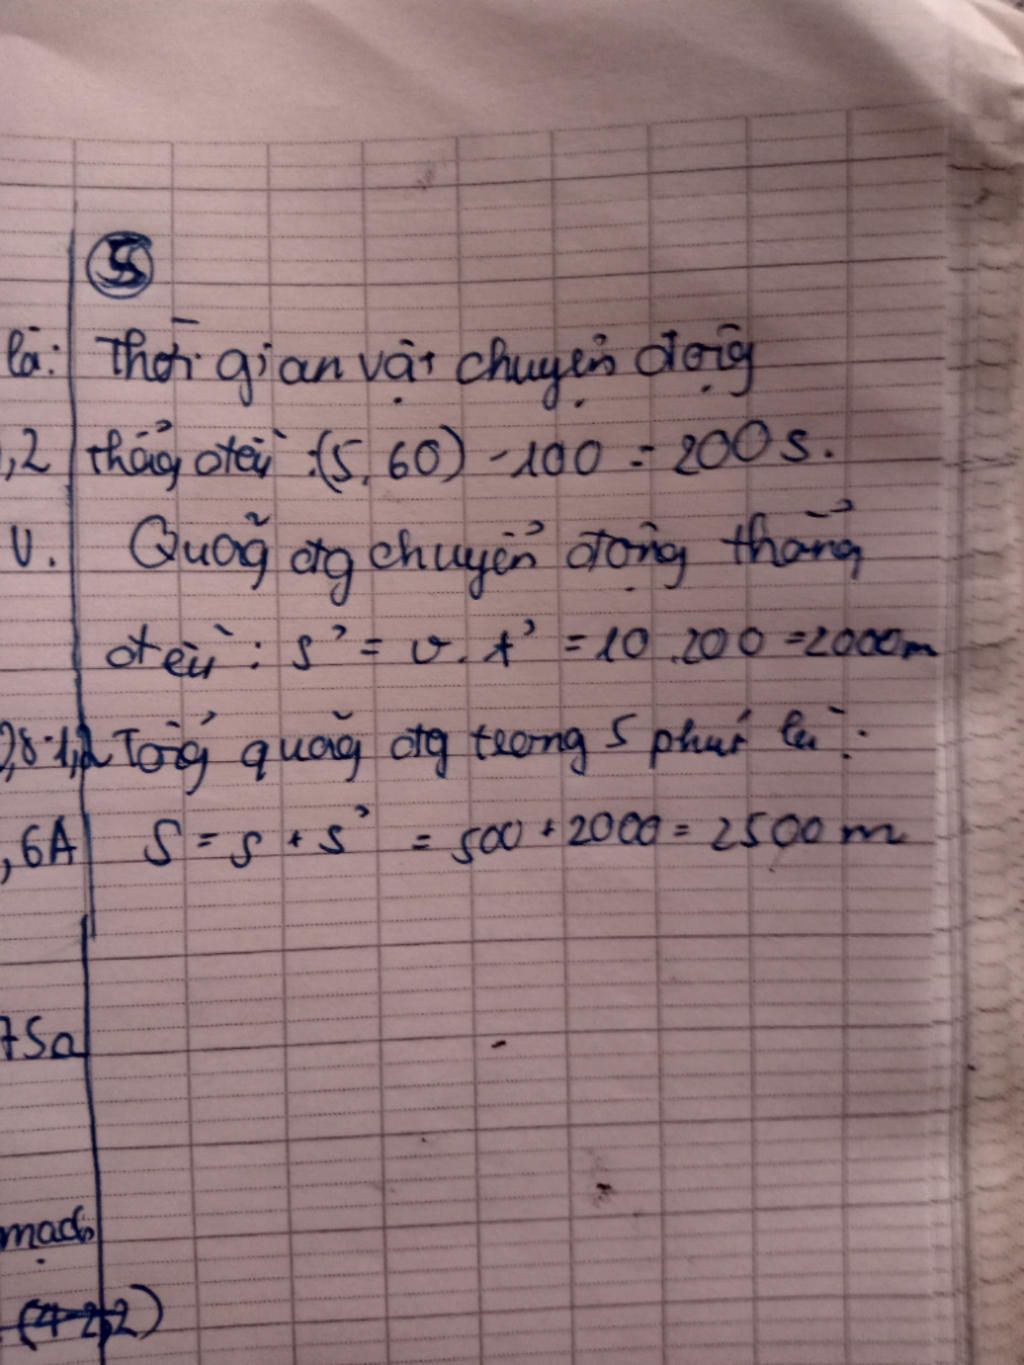 5
là: Thời gian vật chuyển động
,2 thẳng đều :(5.60) - 100 = 200 s.
U. Quãg đg chuyển động thẳng
đều : s' = v. t' = 10 .200 =2000m
Tổng quãg đg trong 5 phút là :
,6A S = s + s' = 500 + 2000 = 2500 m
75a
mạch
(4-2,2)